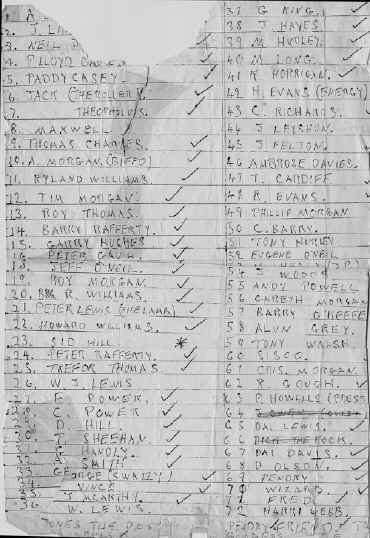 1. A
2. J. L
3. NEIL
4. P. LLOYD
5. PADDY CASEY
6. JACK
7. THEOPHOLUS.
8. MAXWELL
9. THOMAS CHARLES.
10. A. MORGAN. (BIFFO)
11. RYLAND WILLIAMS.
12. TIM MORGAN
13. ROY THOMAS.
14. BARRY RAFFERTY.
15. GARRY HUGHES
16. PETER
18. JEFF O'NEIL.
19. ROY MORGAN.
20. R. WILLIAMS.
21. PETER LEWIS
22. HOWARD WILLIAMS.
23. SID HILL
24. PETER RAFFERTY.
25. TREFOR THOMAS.
26. W. J. LEWIS
27. F. POWER.
C. POWER
D. HILL
T. SHEEHAN.
HANDLY
SMITH
33. GEORGE (SWAZZY)
VINCE
J McCARTHY.
36. W. LEWIS.
JONES THE POST
37 G KING.
38 J. HAYES
39 M HURLEY.
40 M LONG.
41 HORRIGAN.
42 H. EVANS (ENERGY)
43 C. RICHARDS.
44 J LEYSHON.
45 J FELTON.
46 AMBROSE DAVIES.
47 T. CARDIFF
48 R. EVANS.
49 PHILLIP MORGAN
50 C. BARRY.
51 TONY HURLEY
52 EUGENE O'NEIL
54 J WOODS
55 ANDY POWELL
56 GARETH MORGAN
57 BARRY
58 ALUN GREY.
59 TONY WALSH.
60 SISCO.
61 CRIS. MORGAN.
62 R. GOUGH.
63 P. HOWELLS (PRESS
64
65 DAI LEWIS.
66
67 DAI DAVIS.
68 D OLSON.
69 PENDRY
70 WIZARD.
71 FRED
72 HARRY WEBB.
PENDRY FRIEND